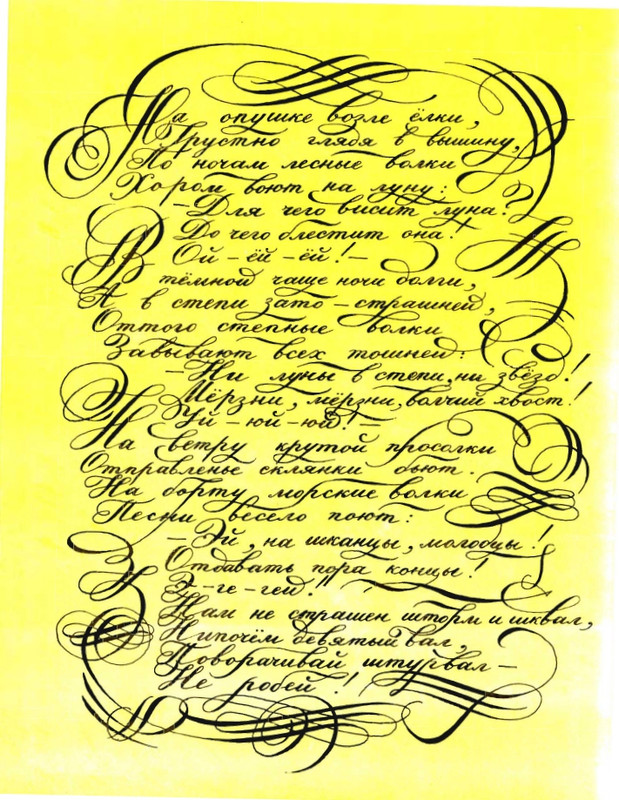 На опушке возле ёлки,
Грустно глядя в вышину,
По ночам лесные волки
Хором воют на луну:
— Для чего висит луна?
До чего блестит она!
Ой - ёй - ёй! —
В тёмной чаще ночи долги,
А в степи зато — страшней,
Оттого степные волки
Завывают всех тошней:
— Ни луны в степи, ни звёзд!
Мёрзни, мёрзни, волчий хвост!
Уй - юй - юй! —
На ветру крутой просолки
Отправленье склянки бьют.
На борту морские волки
Песни весело поют:
— Эй, на шканцы, молодцы!
Отдавать пора концы!
Э - ге - гей!
Нам не страшен шторм и шквал,
Нипочём девятый вал,
Поворачивай штурвал —
Не робей!